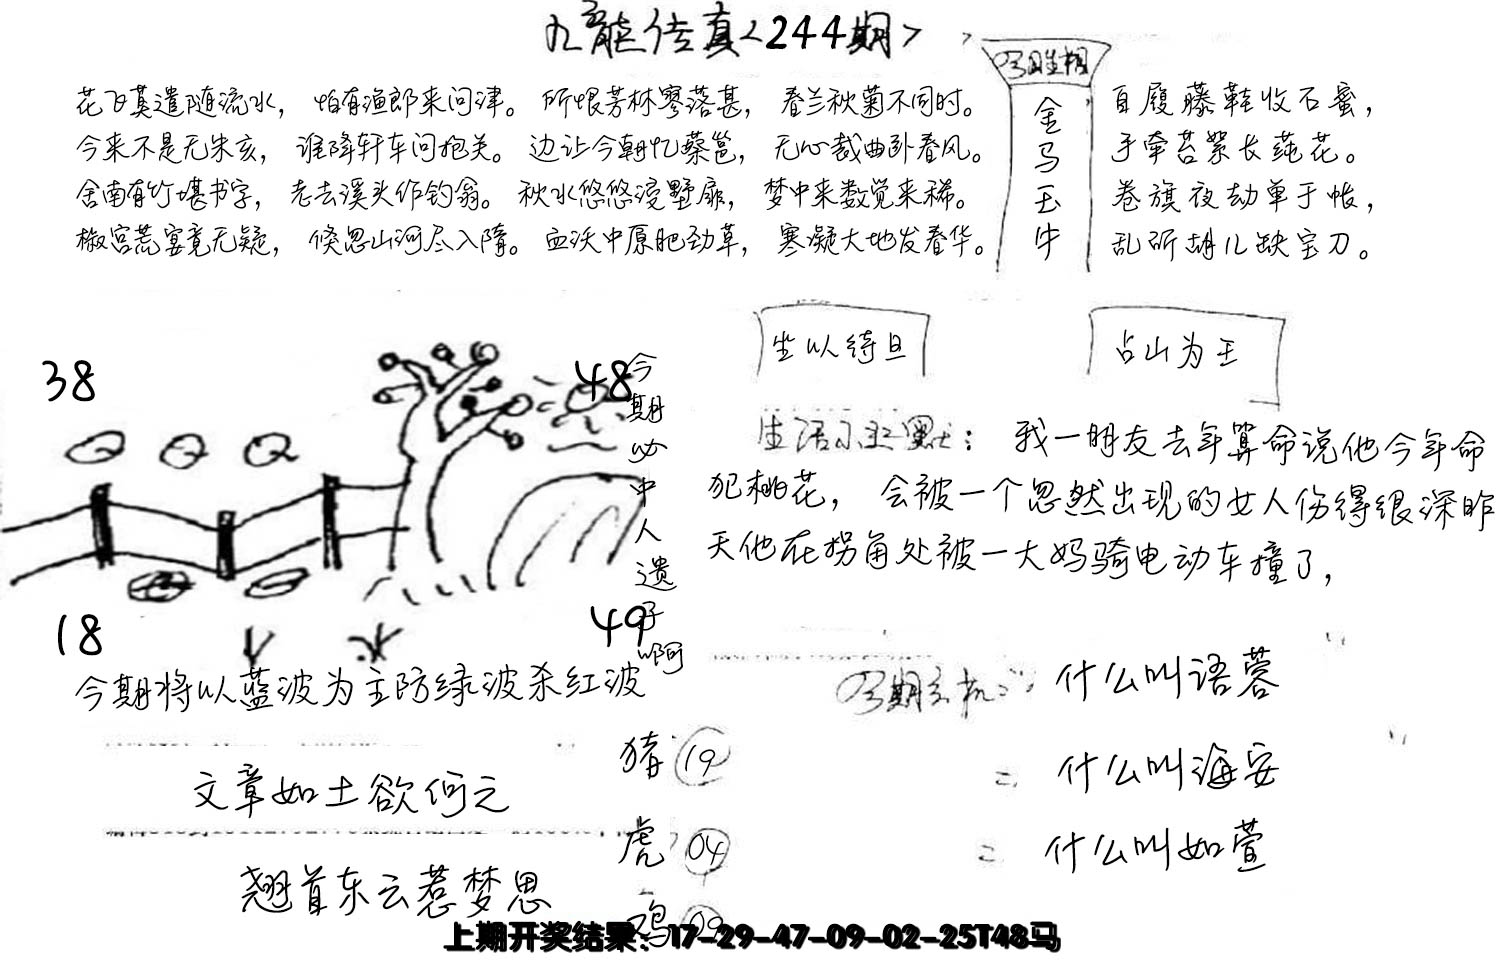 九龙传真<244期>
今期生相
金马玉牛
花飞莫遣随流水，怕有渔郎来问津。所恨芳林寥落甚，春兰秋菊不同时。
今来不是无朱亥，谁降轩车问抱关。边让今朝忆蔡邕，无心裁曲卧春风。
舍南有竹堪书字，老去溪头作钓翁。秋水悠悠浸墅扉，梦中来数觉来稀。
椒宫荒宴竟无疑，倏忽山河尽入隋。血沃中原肥劲草，寒凝大地发春华。
自履藤鞋收石蜜，
手牵苔絮长莼花。
卷旗夜劫单于帐，
乱斫胡儿缺宝刀。
坐以待旦
占山为王
38
48
今期必中人遗子啊
18
49
生活小幽默：我一朋友去年算命说他今年命
犯桃花，会被一个忽然出现的女人伤得很深昨
天他在拐角处被一大妈骑电动车撞了，
今期将以蓝波为主防绿波杀红波
今期玄机：什么叫语蓉
=什么叫海安
=什么叫如萱
文章如土欲何之
翘首东云惹梦思
猪 19
虎 04
鸡 09
上期开奖结果：17-29-47-09-02-25T48马